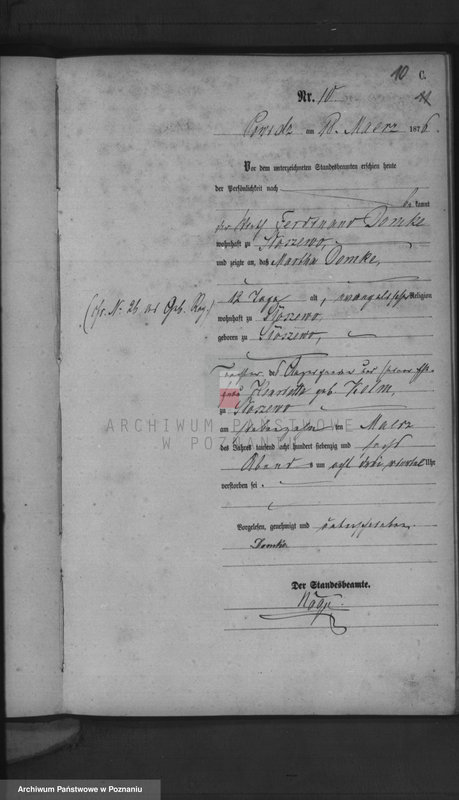 10 C.
Nr. 10.
Powidz am 18. Maerz 1876.
Vor dem unterzeichneten Standesbeamten erschien heute
der Persönlichkeit nach
be kannt
der Ferdinand Domke
wohnhaft zu
und zeigte an, daß Martha Domke,
(cfr. No. 26 Geb. Reg.)
12 Tage alt, evangelischer Religion
wohnhaft zu
geboren zu
Tochter des und seiner Ehe-
frau Henriette geb. Kelm,
zu
ARCHIWUM PAŃSTWOWE
W POZNANIU
am siebenzehnten Maerz
des Jahres tausend acht hundert siebenzig und sechs
Abend s um acht drei viertel Uhr
verstorben sei.
Vorgelesen, genehmigt und unterschrieben.
Domke
Der Standesbeamte.
Archiwum Państwowe w Poznaniu